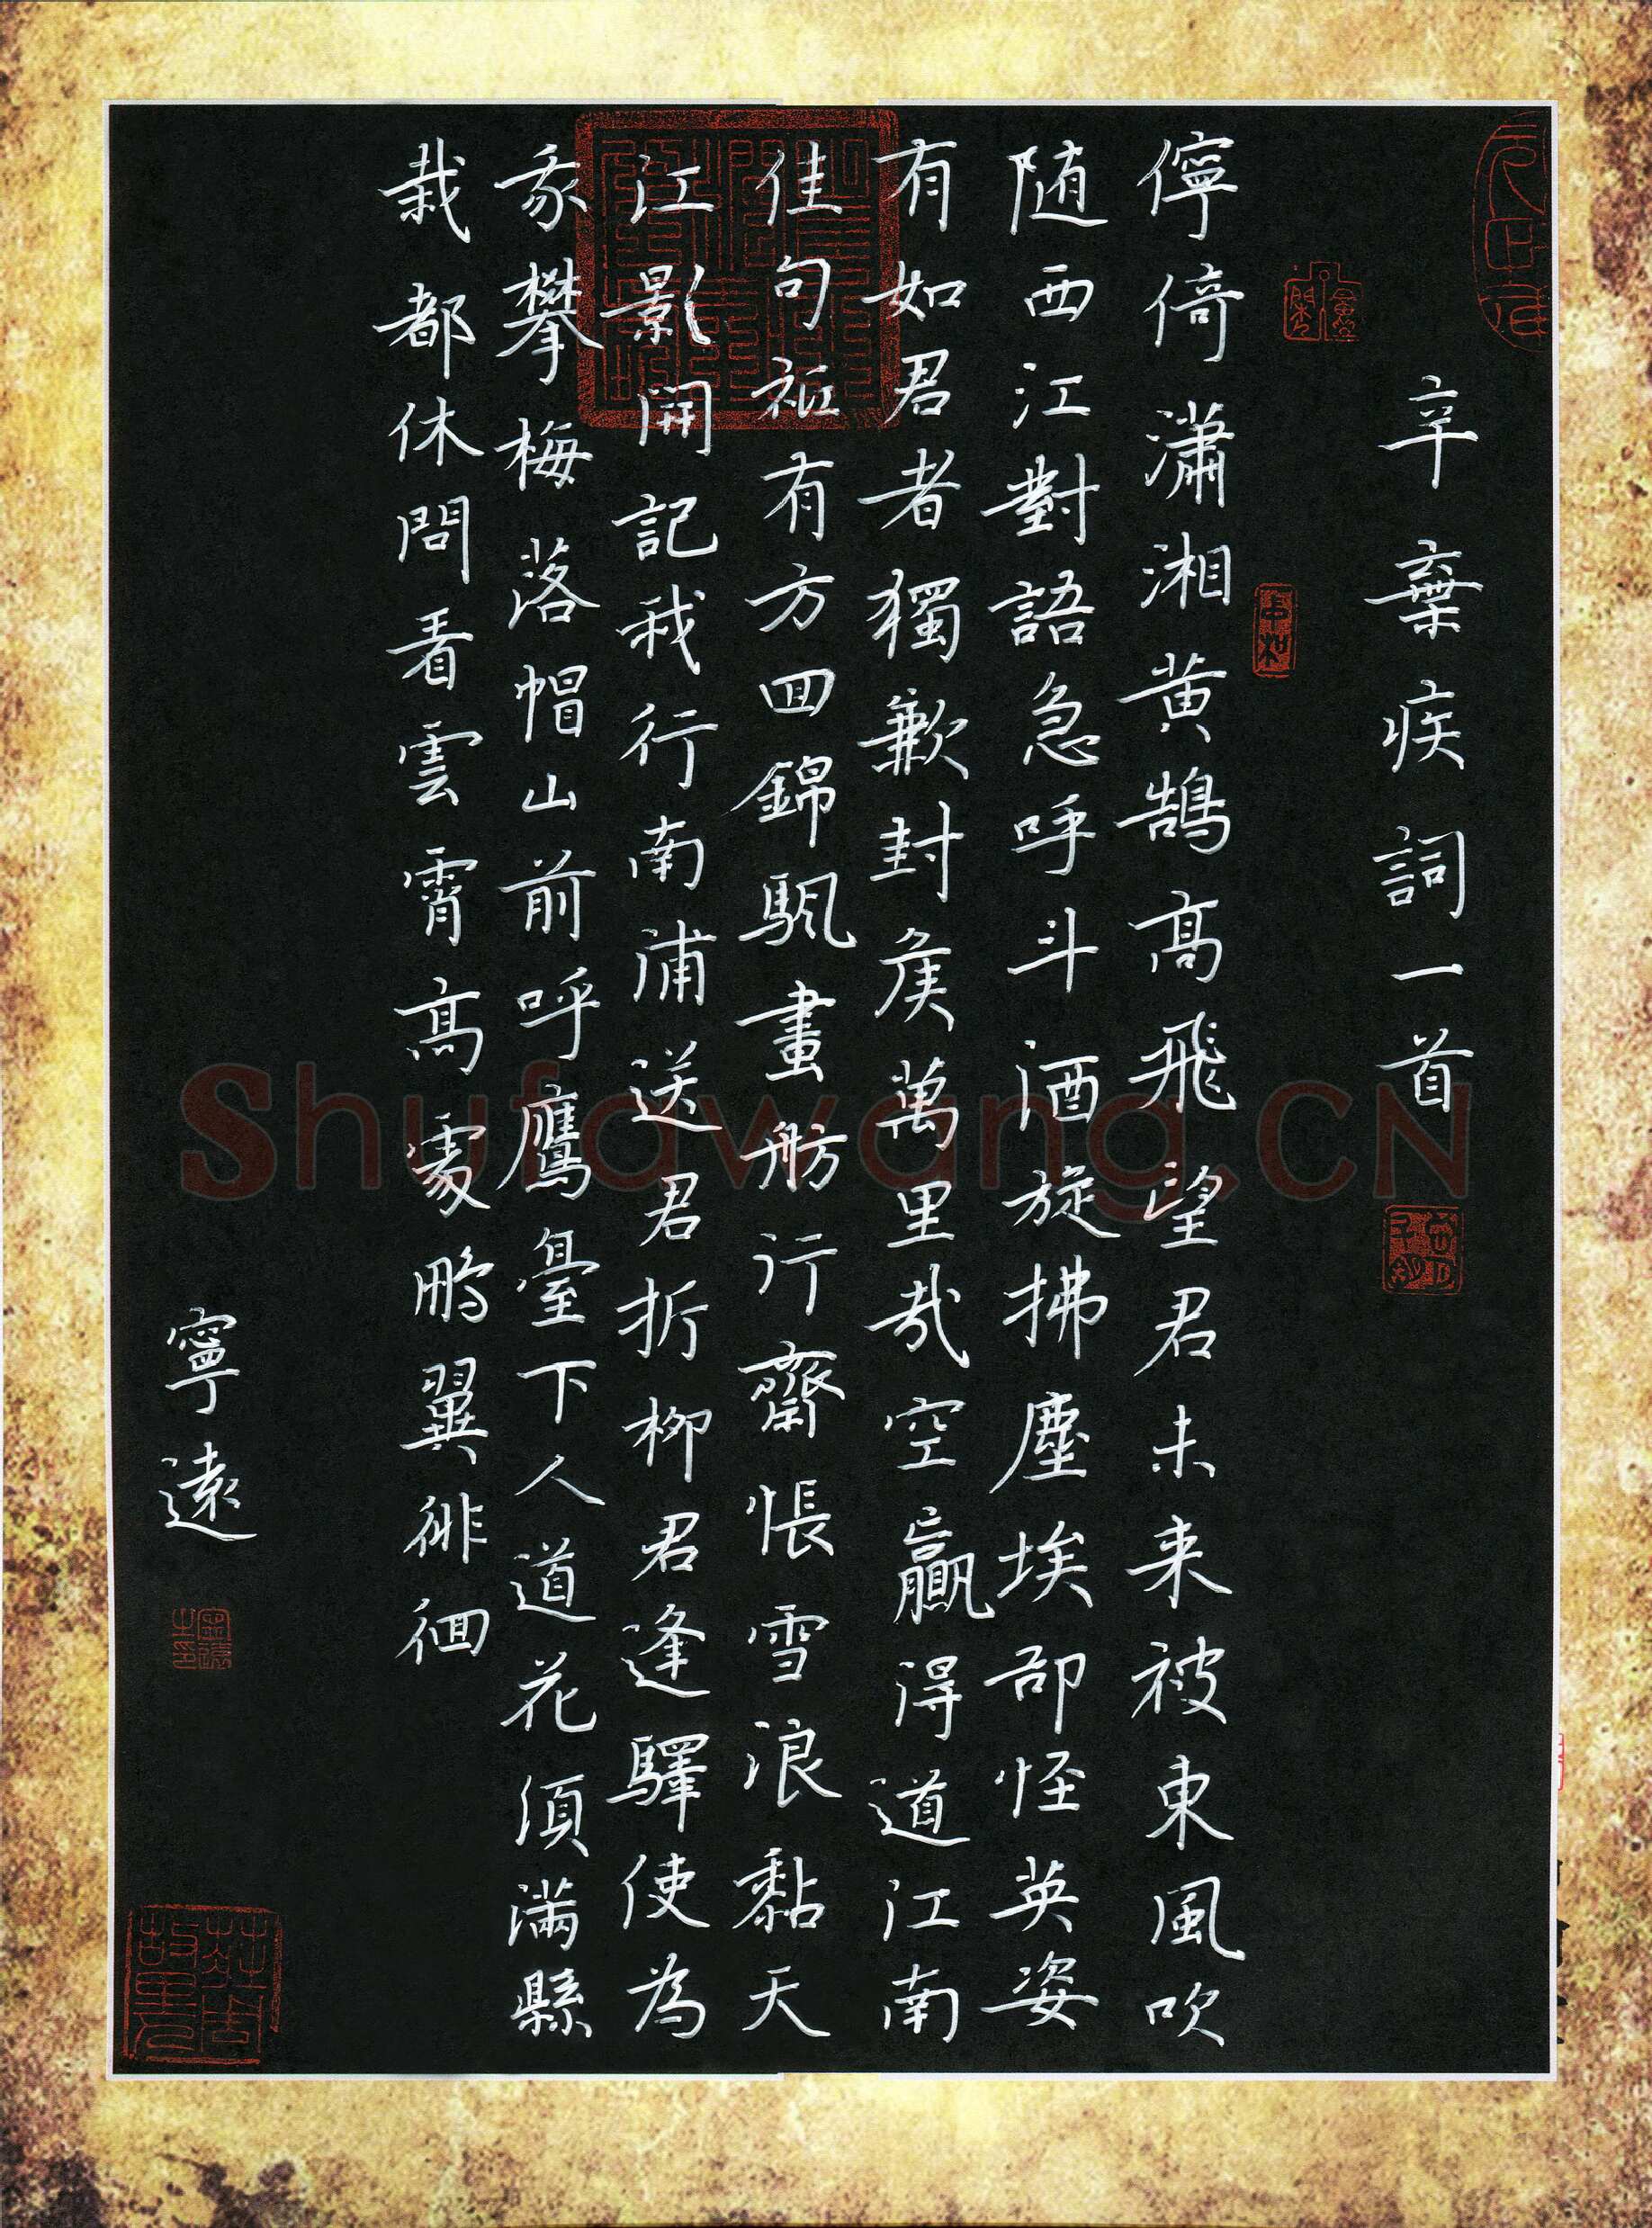 辛棄疾詞一首
儜倚瀟湘黄鵠高飛望君未来被東風吹
随西江對語急呼斗酒旋拂塵埃却怪英姿
有如君者獨歉封侯萬里哉空贏得道江南
佳句祗有方回錦颿畫舫行齋悵雪浪黏天
江影開記我行南浦送君折柳君逢驛使為
我攀梅落帽山前呼鷹臺下人道花須滿縣
栽都休問看雲霄高處鵬翼徘徊
寧遠
中和
Shufawang.CN